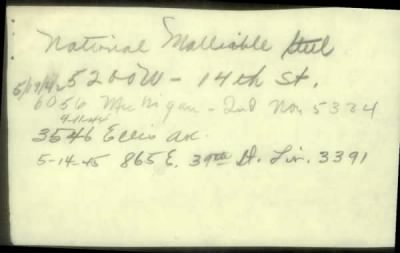 National Malliable Steel
5/17/42 5200 W - 14th St.
6056 Michigan - 2nd Nor. 5334
9-11-44
3546 Ellis ave.
5-14-45 865 E. 39th St. Liv. 3391